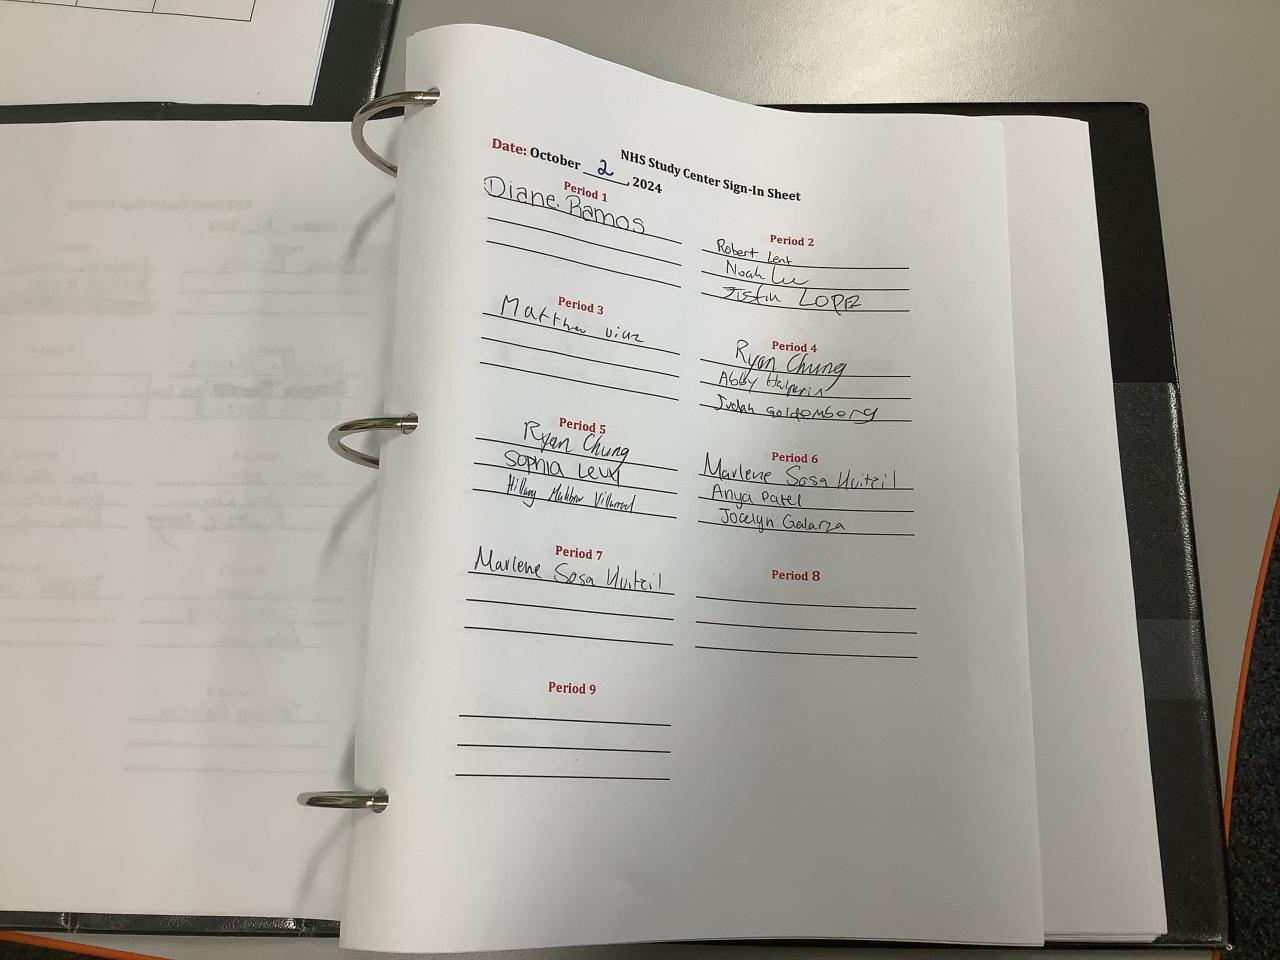 NHS Study Center Sign-In Sheet
Date: October 2, 2024
Period 1
Diane Ramos
Period 2
Robert Lent
Noah Lee
Justin LOPEZ
Period 3
Matthew
Period 4
Ryan Chung
Abby Halperin
Judah Goldemberg
Period 5
Ryan Chung
Sophia Levy
Hillary Villarreal
Period 6
Marlene Sosa Huitzil
Anya Patel
Jocelyn Galarza
Period 7
Marlene Sosa Huitzil
Period 8
Period 9